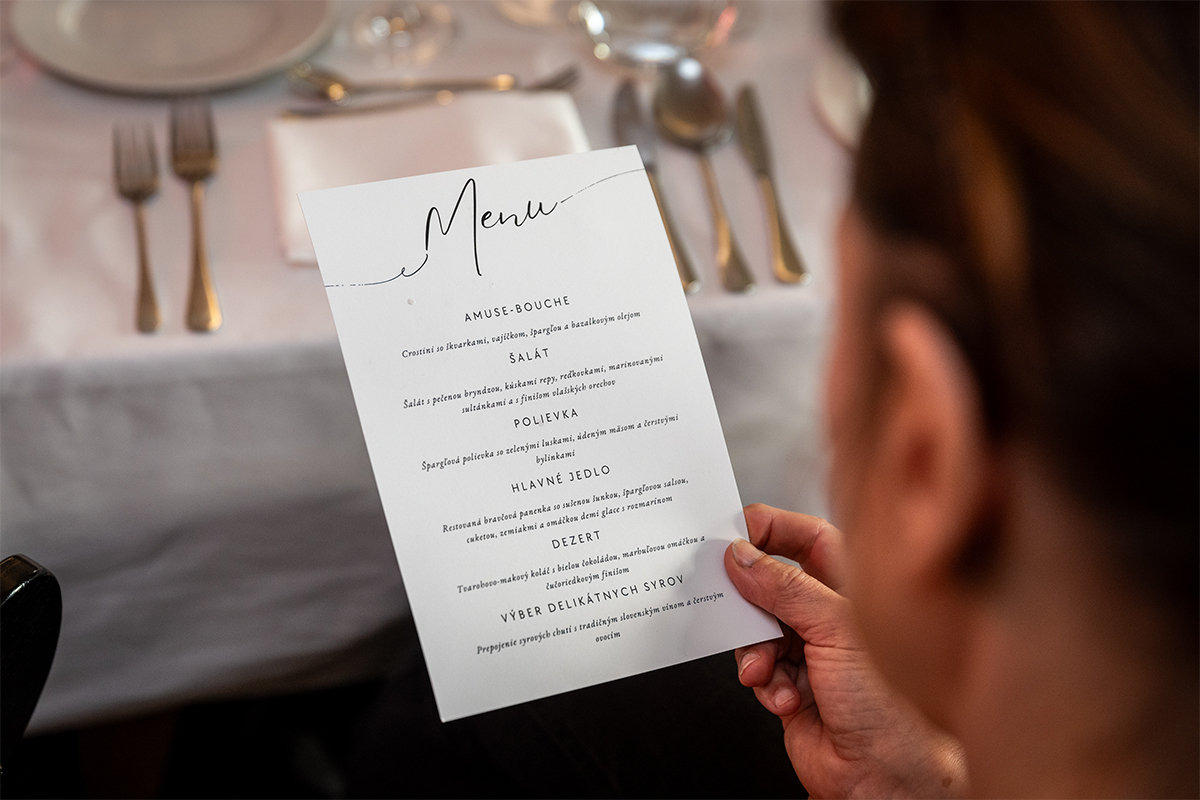 Menu
AMUSE-BOUCHE
Crostini so škvarkami, vajíčkom, špargľou a bazalkovým olejom
ŠALÁT
Šalát s pečenou bryndzou, kúskami repy, reďkovkami, marinovanými
sultánkami a s finišom vlašských orechov
POLIEVKA
Špargľová polievka so zelenými luskami, údeným mäsom a čerstvými
bylinkami
HLAVNÉ JEDLO
Restovaná bravčová panenka so sušenou šunkou, špargľovou salsou,
cuketou, zemiakmi a omáčkou demi glace s rozmarínom
DEZERT
Tvarohovo-makový koláč s bielou čokoládou, marhuľovou omáčkou a
čučoriedkovým finišom
VÝBER DELIKÁTNYCH SYROV
Prepojenie syrových chutí s tradičným slovenským vínom a čerstvým
ovocím